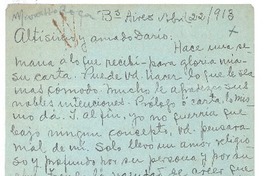 Bs Aires Abril 22/913
Altísimo y amado Dario:
Hace una se
mana a lo que recibí para gloria mía
su carta. Puede vd. hacer lo que le sea
mas cómodo. Mucho le alabanzo sus
nobles intenciones. Prólogo o carta, lo mis
mo dá. I al fin, yo no querría que
bajo ningun concepto, vd. pensara
mal de mí. Solo llevo un amor religio
so y profundo por su persona y por su